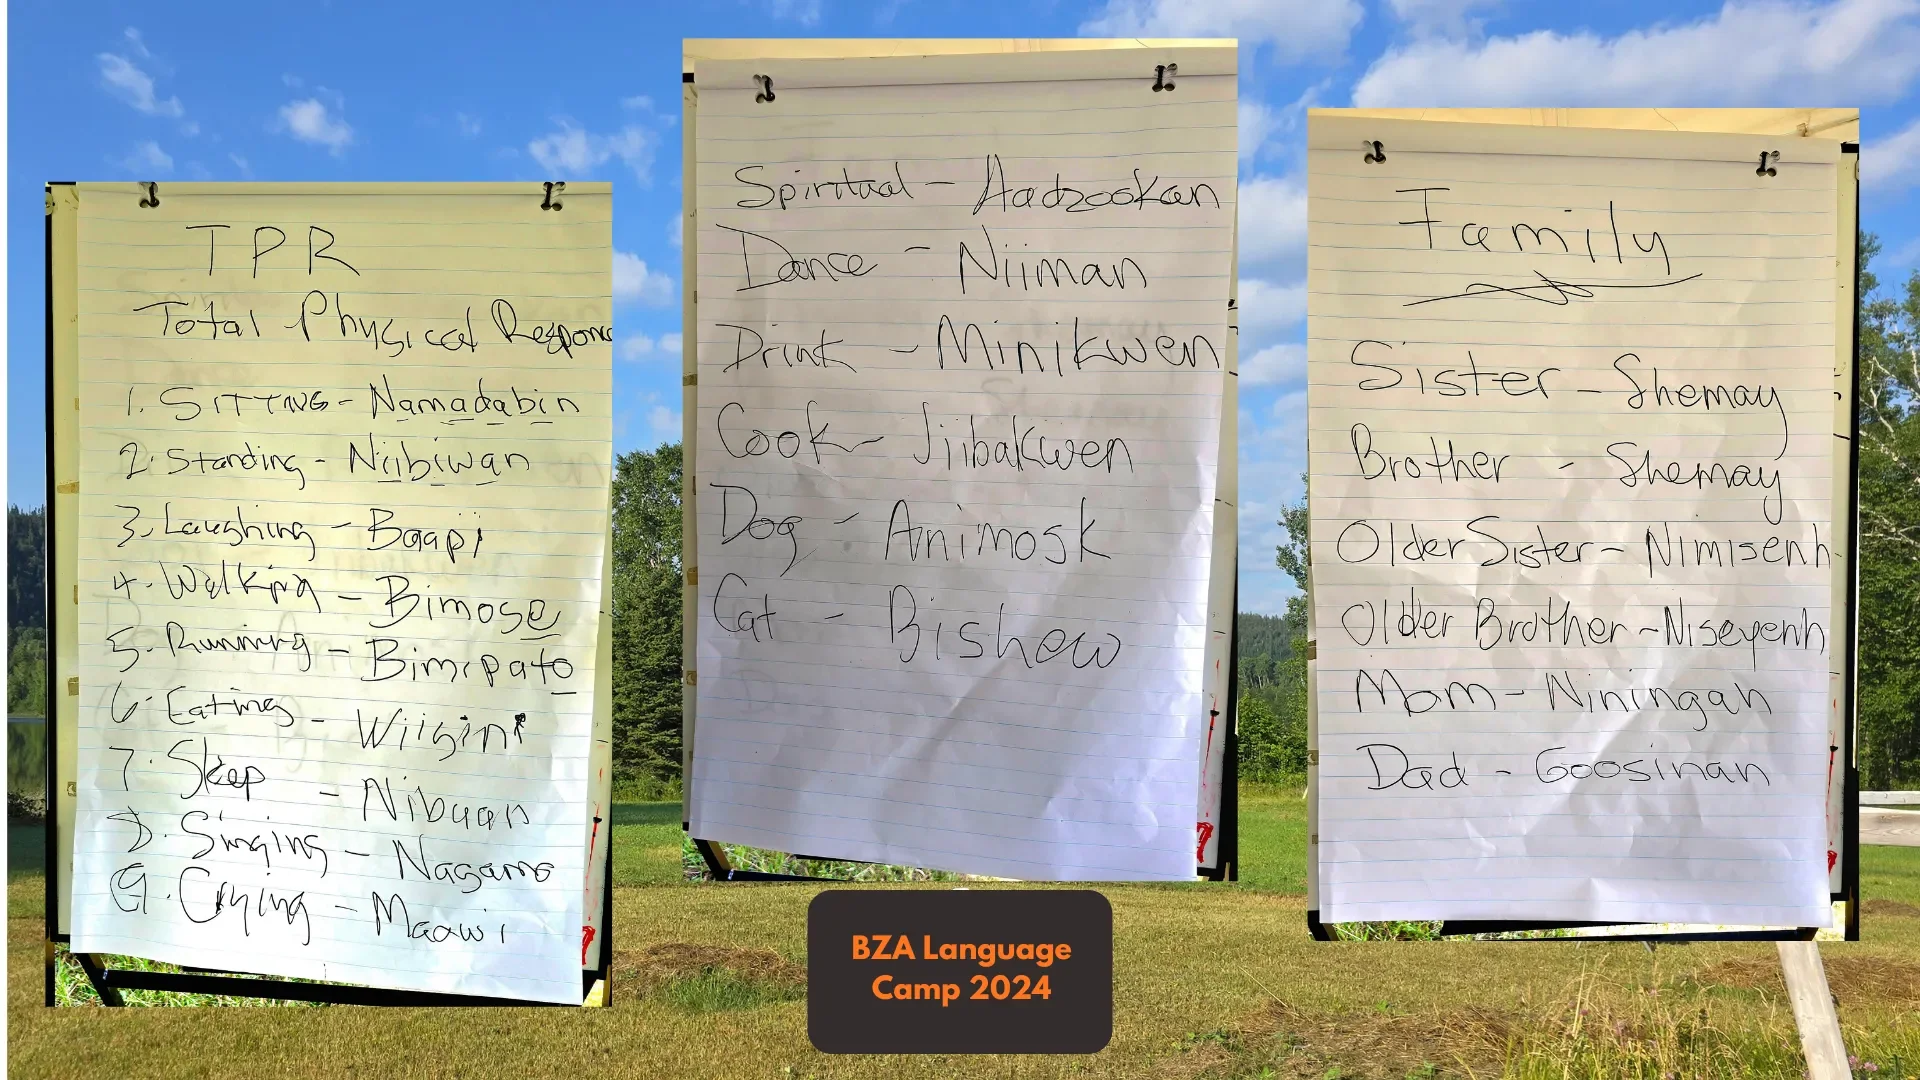 TPR
Total Physical Respons
1. SITTING - Namadabin
2. Standing - Niibiwan
3. Laughing - Baapi
4. Walking - Bimose
5. Running - Bimipato
6. Eating - Wiisini
7. Sleep - Nibaan
8. Singing - Nagamo
9. Crying - Maawi
Spiritual - Aadzookan
Dance - Niiman
Drink - Minikwen
Cook - Jiibakwen
Dog - Animosk
Cat - Bishew
Family
Sister - Shemay
Brother - Shemay
Older Sister - Nimisenh
Older Brother - Niseyenh
Mom - Niningah
Dad - Goosinan
BZA Language
Camp 2024